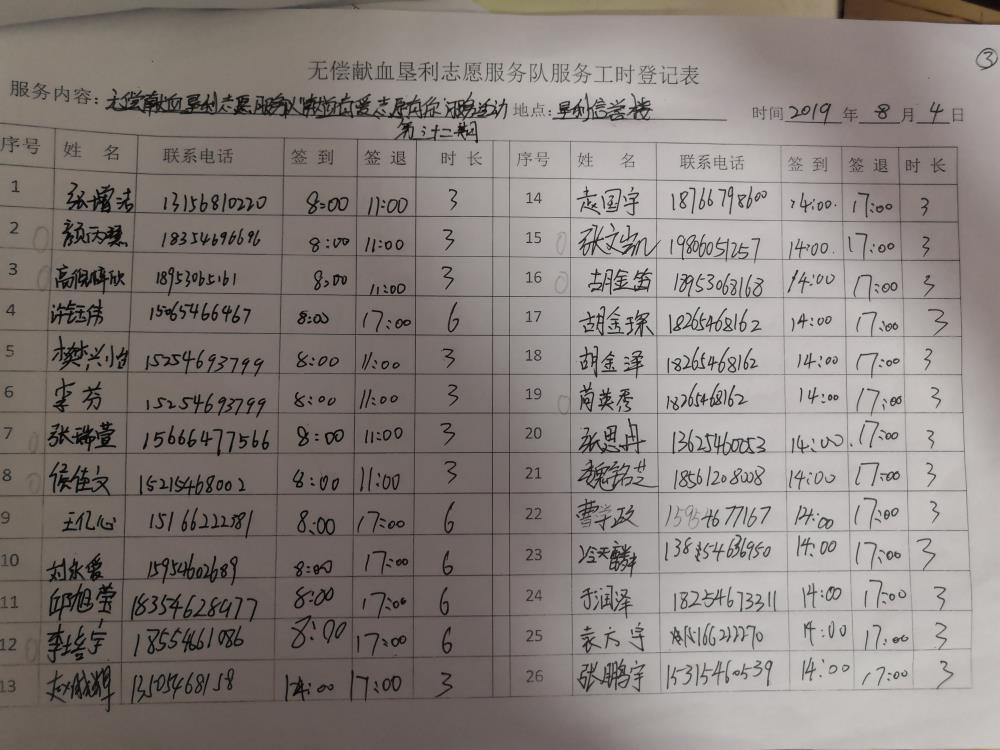 ③
无偿献血垦利志愿服务队服务工时登记表
服务内容：无偿献血垦利志愿服务队 志愿 服务活动 地点：垦利信誉楼 时间 2019 年 8 月 4 日
第三十二期
序号 姓 名 联系电话 签 到 签 退 时 长 序号 姓 名 联系电话 签 到 签 退 时 长
1 张增洁 13156810220 8:00 11:00 3 14 赵国宇 18766798600 14:00 17:00 3
2 颜丙慧 18354696696 8:00 11:00 3 15 张文凯 19806051257 14:00 17:00 3
3 18953065161 8:00 11:00 3 16 胡金笛 18953068168 14:00 17:00 3
4 许钰伟 15065466467 8:00 17:00 6 17 胡金琛 18265468162 14:00 17:00 3
5 15254693799 8:00 11:00 3 18 胡金泽 18265468162 14:00 17:00 3
6 李芬 15254693799 8:00 11:00 3 19 苘英秀 18265468162 14:00 17:00 3
7 张瑞萱 15666477566 8:00 11:00 3 20 张思丹 13625460053 14:00 17:00 3
8 侯佳文 15215468002 8:00 11:00 3 21 魏铭芝 18561208008 14:00 17:00 3
9 王亿心 15166222581 8:00 17:00 6 22 曹学政 15954677167 14:00 17:00 3
10 刘永爱 15954602689 8:00 17:00 6 23 冷天麟 13854636950 14:00 17:00 3
11 邱旭莹 18354628977 8:00 17:00 6 24 于润泽 18254673311 14:00 17:00 3
12 李培宇 1855461086 8:00 17:00 6 25 袁方宇 15166222270 14:00 17:00 3
13 赵成辉 13505468158 14:00 17:00 3 26 张鹏宇 15315460539 14:00 17:00 3